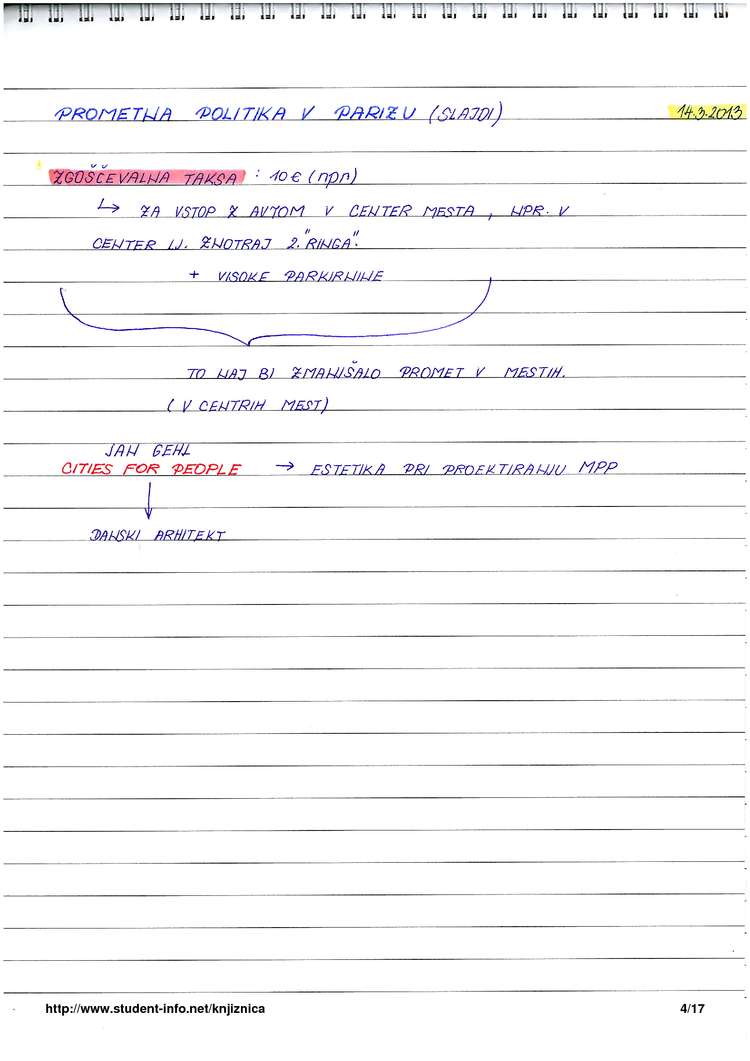 PROMETNA POLITIKA V PARIZU (SLAJDI) 14.3.2013
ZGOŠČEVALNA TAKSA : 10 € (npr)
↳ ZA VSTOP Z AVTOM V CENTER MESTA, NPR. V
CENTER LJ. ZNOTRAJ 2. "RINGA".
+ VISOKE PARKIRNINE
TO NAJ BI ZMANJŠALO PROMET V MESTIH.
(V CENTRIH MEST)
JAN GEHL
CITIES FOR PEOPLE → ESTETIKA PRI PROEKTIRANJU MPP
↓
DANSKI ARHITEKT
http://www.student-info.net/knjiznica 4/17